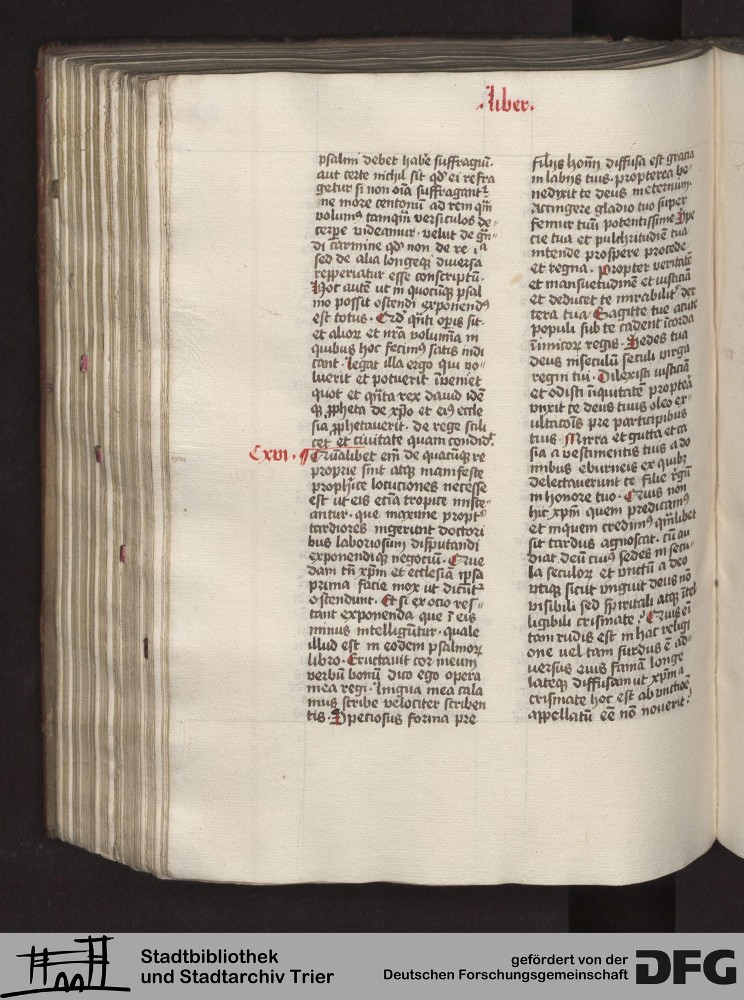 liber.
psalmi debet habe suffragiū.
aut certe nichil sit qd' ei refra
getur si non oīa suffragant᷑
ne more centonū ad rem qm̄
volum⁹ tamqm̄ versiculos de⸗
cerpe videamur. velut de gn̄⸗
di carmine qd' non de re ia
sed de alia longeq diuersa
repperiatur esse conscriptū.
Hoc autē ut in quocūq psal
mo possit ostendi exponend⁹
est totus. Et qn̄ti opis sit
et alioꝝ et nr̄a volumīa in
quibus hoc fecim⁹ satis indi
cant. legat illa ergo qui vo⸗
luerit et potuerit īueniet
quot et qn̄ta rex dauid idē
q̄ ꝓpheta de xp̄o et ei⁹ eccle
sia ꝓphetauerit. de rege scili
cet et ciuitate quam condid᷑.
Cxvi. ¶ Quālibet em̄ de quacūq re
proprie sint atq manifeste
prophīce locuciones necesse
est ut eis ecia tropice misce⸗
antur. que maxime propt᷑
tardiores ingerunt doctori
bus laboriosum disputandi
exponendiq negociū. Que
dam tn̄ xpm̄ et ecclesiā ipsa
prima facie mox ut dicūt᷑
ostendunt. Et si ex ocio res⸗
tant exponenda que ī eis
minus intelligūtur. quale
illud est in eodem psalmoꝝ
libro. Eructauit cor meum
verbū bonū dico ego opera
mea regi. lingua mea cala
mus scribe velociter scriben
tis. Speciosus forma pre
filijs hom̄ diffusa est gracia
in labijs tuis. propterea be⸗
nedixit te deus in eternum.
Accingere gladio tuo super
femur tuū potentissime. Spe
cie tua et pulchritudīe tua
intende prospere procede
et regna. propter veritatē
et mansuetudinē et iusticiā
et deducet te mirabilit᷑ dex
tera tua. Sagitte tue acute
populi sub te cadent ī corda
inimicoꝝ regis. Sedes tua
deus in seculū seculi virga
regni tui. Dilexisti iusticiā
et odisti īiquitatē propterea
vnxit te deus tuus oleo ex⸗
ultacōis pre participibus
tuis. Mirra et gutta et ca
sia a vestimentis tuis a do
mibus eburneis ex quibꝫ
delectauerunt te filie regū
in honore tuo. Quis non
hic xpm̄ quem predicam⁹
et in quem credim⁹ qm̄libet
sit tardus agnoscat. cū au
diat deū cui⁹ sedes in secu⸗
la seculoꝝ et vnctū a deo
vtiq sicut vnguit deus nō
visibili sed spiritali atq intel
ligibili crismate. Quis em̄
tam rudis est in hac religi
one vel tam surdus ē ad⸗
uersus eius famā longe
lateq diffusam ut xpm̄ a
crismate hoc est ab vnctiōe
appellatū eē nō nouerit.
Stadtbibliothek
und Stadtarchiv Trier
gefördert von der
Deutschen Forschungsgemeinschaft
DFG